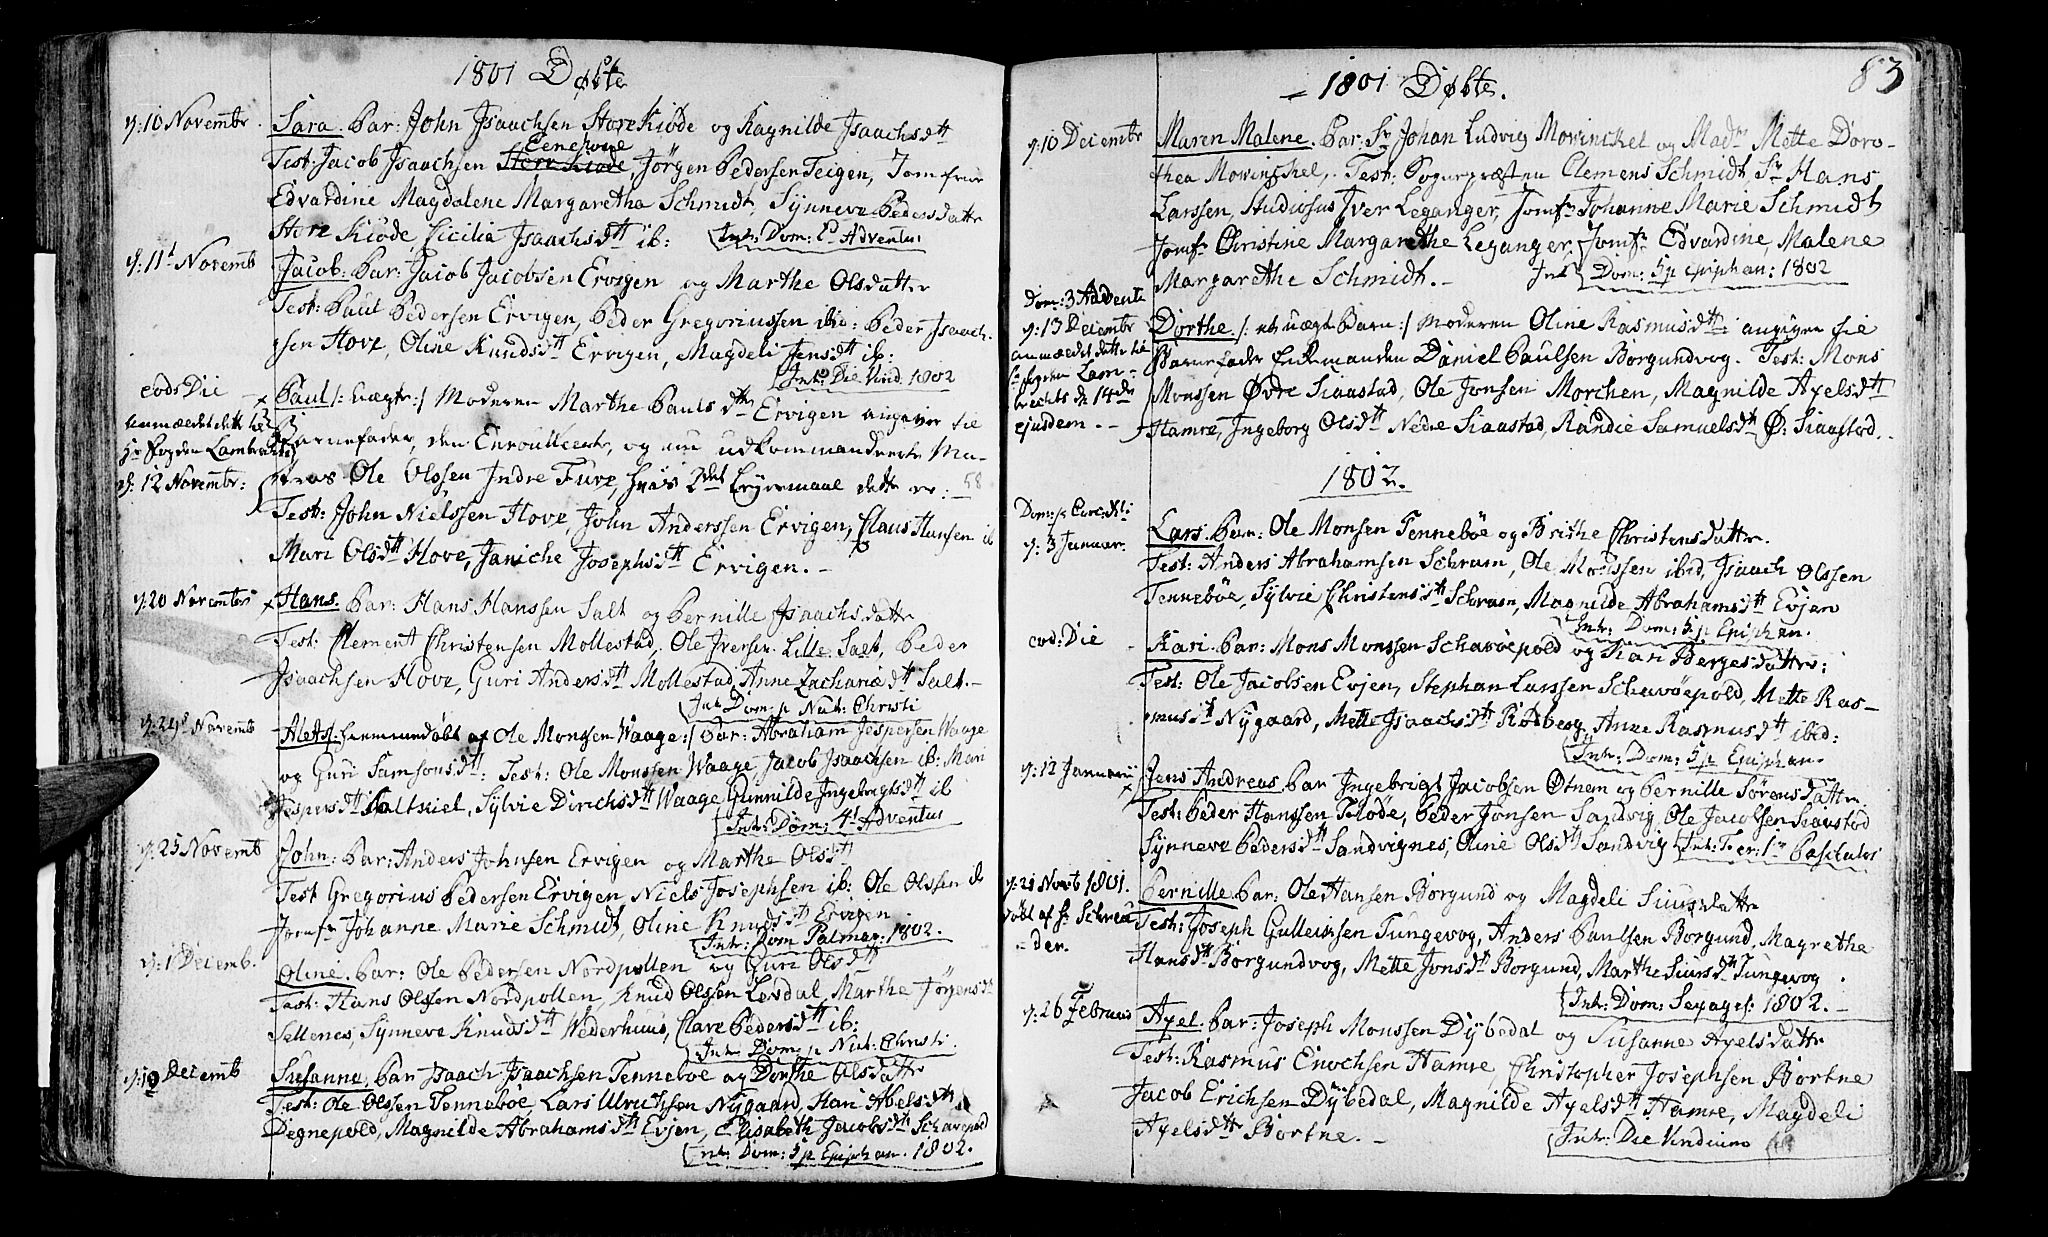 1801 Døbte
d: 10 Novembr. Sara. Par: John Jsaachsen Storekiøde og Ragnilde Jsaachsdtt
Eenekone
Test: Jacob Jsaachsen Store Kiøde, Jørgen Pedersen Teigen, Jomfrue
Edvardine Magdalene Margaretha Schmidt, Synneve Pedersdatter
Store Kiøde, Cicilia Jsaachsdtt ib: Intr: Dom: 1 Adventus
d: 11t Novemb Jacob: Par: Jacob Jacobsen Ervigen og Marthe Olsdatter
Test: Paul Pedersen Ervigen, Peder Gregoriussen ibid: Peder Jsaach-
sen Hove, Oline Knudsdtt Ervigen, Magdeli Jensdtt ib:
Intr: Die Vind. 1802
eods Die
Paul /: Uægte:/ Moderen Marthe Paulsdtr Ervigen angiver til
anmældet dette til
hr Fogden Lambrechts
d: 12 Novembr:
Barnefader, den Enroulleerte, og nu udkommanderte Ma-
tros Ole Olssen Indre Fure, hvis 2det Leyermaal dette er: 58
Test: John Nielssen Hove, John Anderssen Ervigen, Claus Hansen ib
Mari Olsdtt Hove, Janiche Josephsdtt Ervigen. -
d: 20 Novembr Hans. Par: Hans Hanssen Salt og Pernille Jsaachsdatter
Test: Clement Christensen Mollestad, Ole Iversen Lille Salt, Peder
Jsaachsen Hove, Guri Andersdtt Mollestad, Anne Zachariædtt Salt. -
Intr Dom: p Nat: Christi
d: 24de Novemb Alet /: hiemmedøbt af Ole Monssen Waage:/ Par: Abraham Jespersen Waage
og Guri Samsonsdtt: Test: Ole Monssen Waage, Jacob Jsaachsen ib: Mari
Jespersdtt Saltskiel, Sylvie Dirichsdtt Waage, Gunnilde Ingebrigtsdtt ib
Intr: Dom: 4t Adventus
d: 25 Novemb John: Par: Anders Johnsen Ervigen og Marthe Olsdtt
Test Gregorius Pedersen Ervigen, Niels Josephsen ib: Ole Olssen ib
Jomfr Johanne Marie Schmidt, Oline Knudsdtt Ervigen
Intr: Dom Palmar: 1802.
d: 1 Decemb. Oline. Par: Ole Pedersen Nordpollen og Guri Olsdtt
Test: Hans Olssen Nordpollen, Knud Olssen Levdal, Marthe Jørgensdtt
Sellenes, Synneve Knudsdtt Wederhuus, Clare Pedersdtt ib:
Intr Dom: p Nat: Christi.
d: 10 Decemb Susanne, Par Jsaach Jsaachsen Tenneboe og Dorthe Olsdatter
Test: Ole Olssen Tenneboe, Lars Ulrichsen Nygaard, Kari Abelsdtt
Degnepold, Magnilde Abrahamsdtt Evjen, Elisabeth Jacobsdtt Scharepold
Intr: Dom: 5 p Epiphan. 1802.
83
1801 Døbte.
d: 10 Decembr Maren Malene. Par: Sr Johan Ludvig Mowinckel og Madme Mette Doro-
thea Mowinckel, Test: Sognepræsten Clemens Schmidt, Sr Hans
Larssen, Studiosus Iver Leganger, Jomfr Johanne Marie Schmidt
Jomfr Christine Margarethe Leganger, Jomfr Edvardine, Malene
Margarethe Schmidt. - Intr Dom: 5 p Epiphan: 1802
Dom: 3 Advent
d: 13 Decembr
anmældet dette til
Hr Fogden Lam-
brechts d: 14de
ejusdem. -
Dorthe. /: et uægte Barn:/ Moderen Oline Rasmusdtt: angiven til
Barnefader Enkemanden Daniel Paulsen Borgundvog. Test: Mons
Monssen Øvre Siaastad, Ole Jonsen Morchen, Magnilde Axelsdtt
Hamre, Ingeborg Olsdtt Nedre Siaastad, Randie Samuelsdtt Ø: Siaastad.
1802.
Dom: p Circ: Xti
d: 3 Januar. Lars. Par: Ole Monsen Tennebøe og Brithe Christensdatter.
Test: Anders Abrahamsen Schram, Ole Monssen ibid, Jsaach Olssen
Tennebøe, Sylvie Christensdtt Schram, Magnilde Abrahamsdtt Evjen
Intr: Dom: 5 p Epiphan.
eod: Die Kari. Par: Mons Monssen Schavøepold og Kari Bergesdatter:
Test: Ole Jacobsen Evjen, Stephan Larssen Schavøepold, Mette Ras-
musdtt Nygaard, Mette Jsaachsdtt Rødberg, Anne Rasmusdtt ibid:
Intr: Dom: 5 p Epiphan.
d: 12 Januarii Jens Andreas. Par Ingebrigt Jacobsen Otnem og Pernille Sørensdatter
Test: Peder Hanssen Fløde, Peder Jonsen Sandvig, Ole Jacobsen Siaastad
Synneve Pedersdtt Sandvignes, Oline Olsdtt Sandvig Intr: Fer: 1ma Paschatos
d: 21 Novb 1801.
døbt af Hr Schreu-
der.
Pernille. Par: Ole Hansen Borgund og Magdeli Siursdatter
Test: Joseph Gulleiksen Tungevog, Anders Paulsen Borgund, Magrethe
Hansdtt Borgundvog, Mette Jonsdtt Borgund, Marthe Siursdtt Tungevog.
Intr: Dom: Sexages: 1802. -
d: 26 Februar Axel. Par: Joseph Monssen Dybedal og Susanne Axelsdatter
Test: Rasmus Enochsen Hamre, Christopher Josephsen Bortne
Jacob Erichsen Dybedal, Magnilde Axelsdtt Hamre, Magdeli
Axelsdtr Bortne. -
Intr: Die Viridium